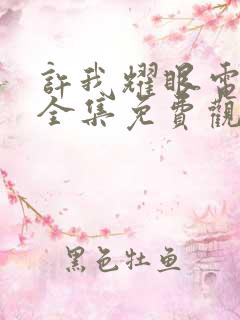 許我耀眼電
全集免費觀
黑色牡魚